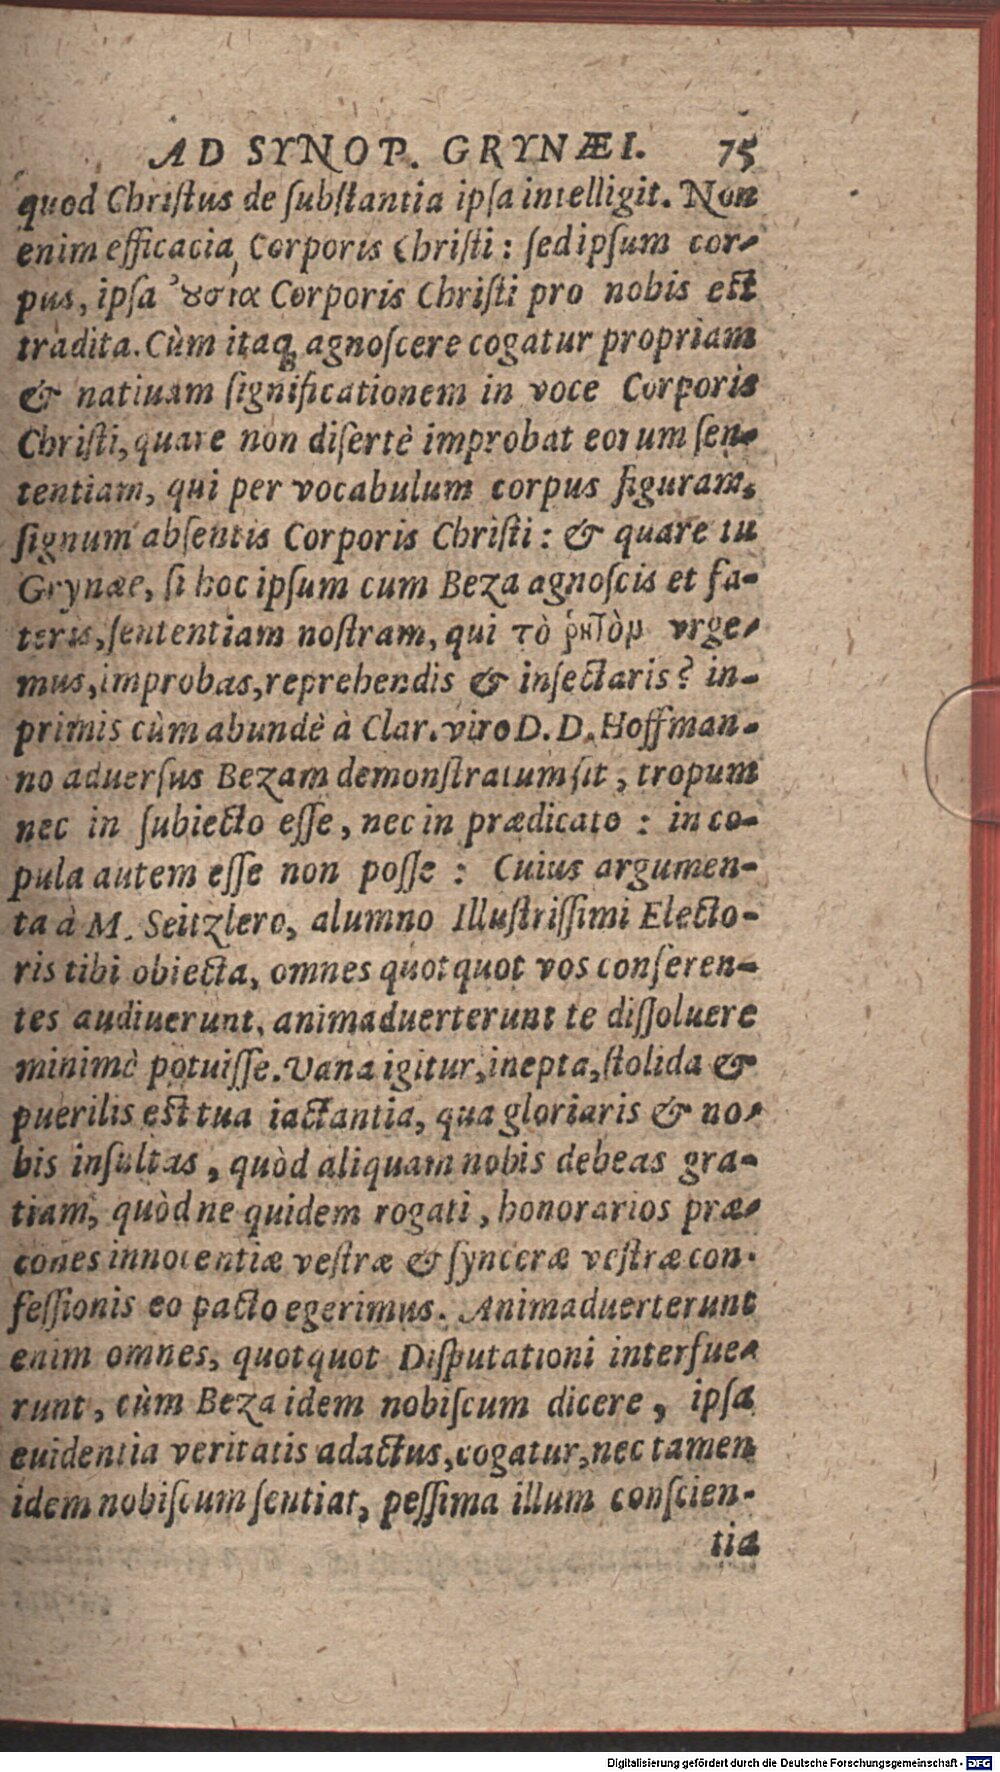 AD SYNOP. GRYNÆI. 75
quod Chriſtus de ſubſtantia ipſa intelligit. Non
enim efficacia Corporis Chriſti: ſed ipſum cor-
pus, ipſa ȣ̓σία Corporis Chriſti pro nobis eſt
tradita. Cùm itaq; agnoſcere cogatur propriam
& natiuam ſignificationem in voce Corporis
Chriſti, quare non diſertè improbat eorum ſen-
tentiam, qui per vocabulum corpus figuram,
ſignum abſentis Corporis Chriſti: & quare tu
Grynæe, ſi hoc ipſum cum Beza agnoſcis et fa-
teris, ſententiam noſtram, qui τὸ ῥητὸμ vrge-
mus, improbas, reprehendis & inſectaris? in-
primis cùm abundè à Clar. viro D. D. Hoffman-
no aduerſus Bezam demonſtratum ſit, tropum
nec in ſubiecto eſſe, nec in prædicato: in co-
pula autem eſſe non poſſe: Cuius argumen-
ta à M. Seitzlero, alumno Illuſtriſſimi Electo-
ris tibi obiecta, omnes quotquot vos conferen-
tes audiuerunt, animaduerterunt te diſſoluere
minimè potuiſſe. Vana igitur, inepta, ſtolida &
puerilis eſt tua iactantia, qua gloriaris & no-
bis inſultas, quòd aliquam nobis debeas gra-
tiam, quòd ne quidem rogati, honorarios præ-
cones innocentiæ veſtræ & ſynceræ veſtræ con-
feſſionis eo pacto egerimus. Animaduerterunt
enim omnes, quotquot Diſputationi interfue-
runt, cùm Beza idem nobiſcum dicere, ipſa
euidentia veritatis adactus, cogatur, nec tamen
idem nobiſcum ſentiat, peſſima illum conſcien-
tia
Digitalisierung gefördert durch die Deutsche Forschungsgemeinschaft - DFG